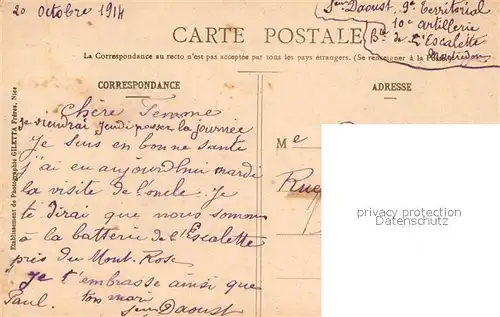 20 Octobre 1914
Daoust, 9e Territorial
10e artillerie
Bie de l'Escalette
Montredon
CARTE POSTALE
La Correspondance au recto n'est pas acceptée par tous les pays étrangers. (Se renseigner à la Poste)
CORRESPONDANCE
ADRESSE
Etablissement de Photographie GILETTA Frères, Nice
Chère Femme
je viendrai jeudi passer la journée
Je suis en bonne santé
j'ai eu aujourd'hui mardi
la visite de l'oncle. Je
te dirai que nous sommes
à la batterie de l'Escalette
près du Mont-Rose
je t'embrasse ainsi que
Paul. ton mari
Daoust
Me
Rue
privacy protection
datenschutz
protection des données